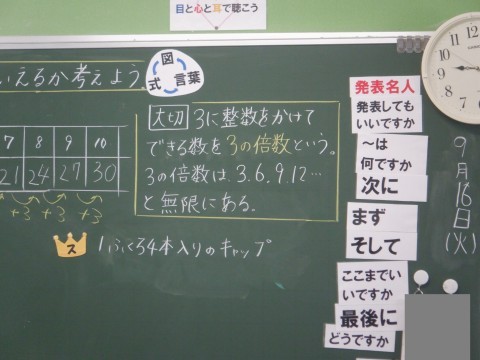 目と心と耳で聴こう
いえるか考えよう。
図
式
言葉
7 8 9 10
21 24 27 30
+3 +3 +3
大切 3に整数をかけて
できる数を3の倍数という。
3の倍数は、3.6.9.12…
と無限にある。
ス 1ふくろ4本入りのキャップ
発表名人
発表しても
いいですか
～は
何ですか
次に
まず
そして
ここまでい
いですか
最後に
どうですか
9月16日(火)
CASIO